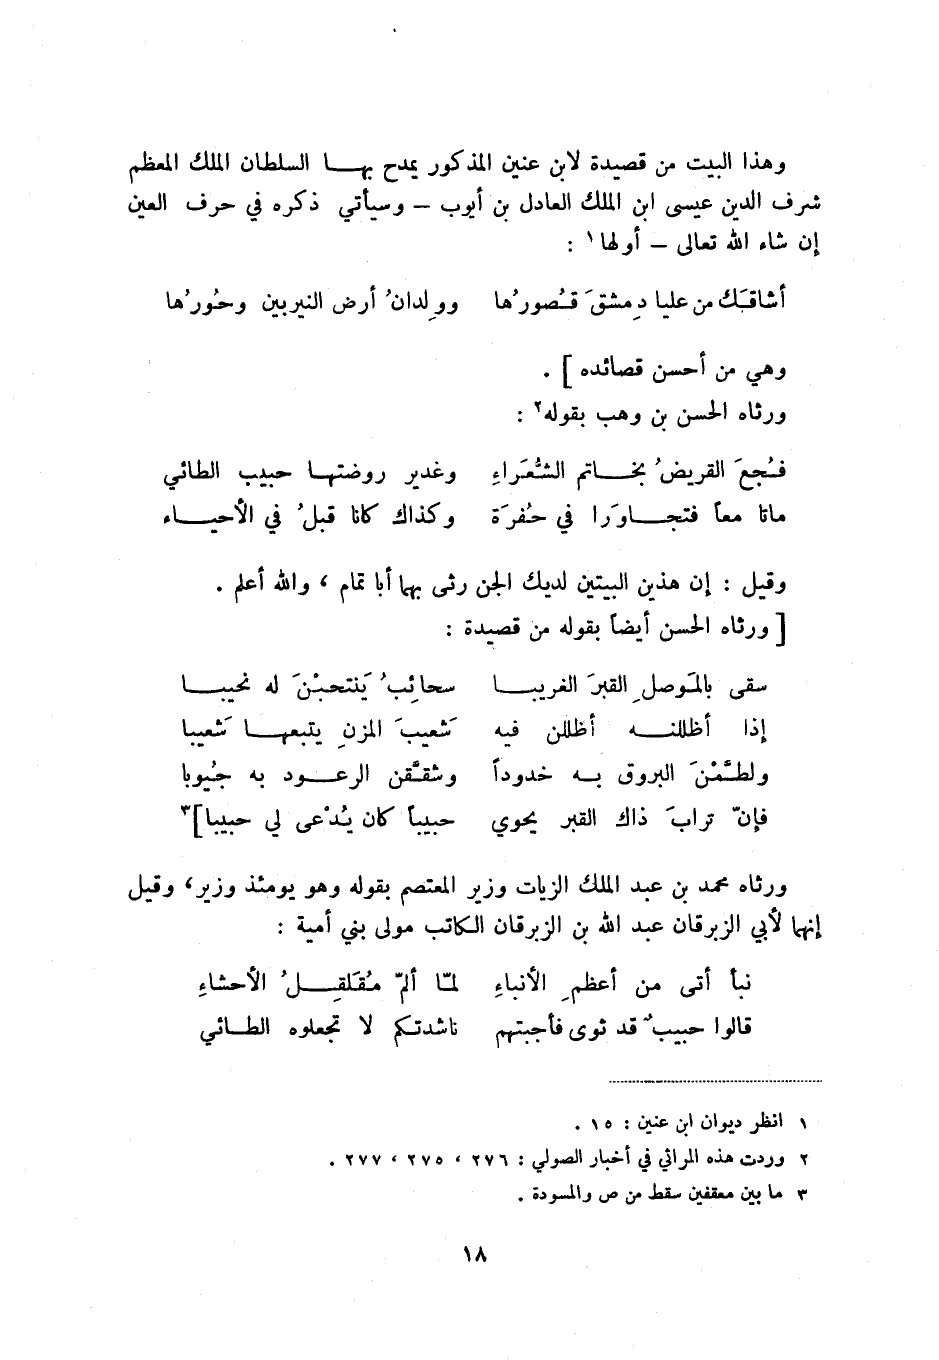 وهذا البيت من قصيدة لابن عنين المذكور يمدح بهـــا السلطان الملك المعظم
شرف الدين عيسى ابن الملك العادل بن أيوب – وسيأتي ذكره في حرف العين
إن شاء الله تعالى – أولها١ :
أشاقَـَك من عليا دِمشقَ قـُصورُها وولدانُ أرض النيربين وحُورُها
وهي من أحسن قصائده ] .
ورثاه الحسن بن وهب بقوله٢ :
فـُجعَ القريضُ بخـــاتم الشُّعَراءِ وغدير روضتهـا حبيب الطائي
ماتا معاً فتجــاوَرا في حُفرَة وكذاك كانا قبلُ في الأحيــاء
وقيل : إن هذين البيتين لديك الجن رثى بهما أبا تمام ، والله أعلم .
[ ورثاه الحسن أيضاً بقوله من قصيدة :
سقى بالمَوصلِ القبرَ الغريبـــا سحائِبُ يَنتحبْنَ له نحيبـــا
إذا أظللنـــه أظللن فيه شَعيبَ المزنِ يتبعهــا شَعيبا
ولطَّمْنَ البروق بــه خدوداً وشقَّقن الرعــود به جُيوبا
فإنّ ترابَ ذاك القبر يحوي حبيباً كان يُدْعى لي حبيبا]٣
ورثاه محمد بن عبد الملك الزيات وزير المعتصم بقوله وهو يومئذ وزير، وقيل
إنها لأبي الزبرقان عبد الله بن الزبرقان الكاتب مولى بني أمية :
نبأ أتى من أعظمِ الأنباءِ لمّا ألمّ مُقَلقِــلُ الأحشاءِ
قالوا حبيبٌ قد ثوى فأجبتهم ناشدتكم لا تجعلوه الطــائي
١ انظر ديوان ابن عنين : ١٥ .
٢ وردت هذه المراثي في أخبار الصولي : ٢٧٦ ، ٢٧٥ ، ٢٧٧ .
٣ ما بين معقفين سقط من ص والمسودة .
١٨